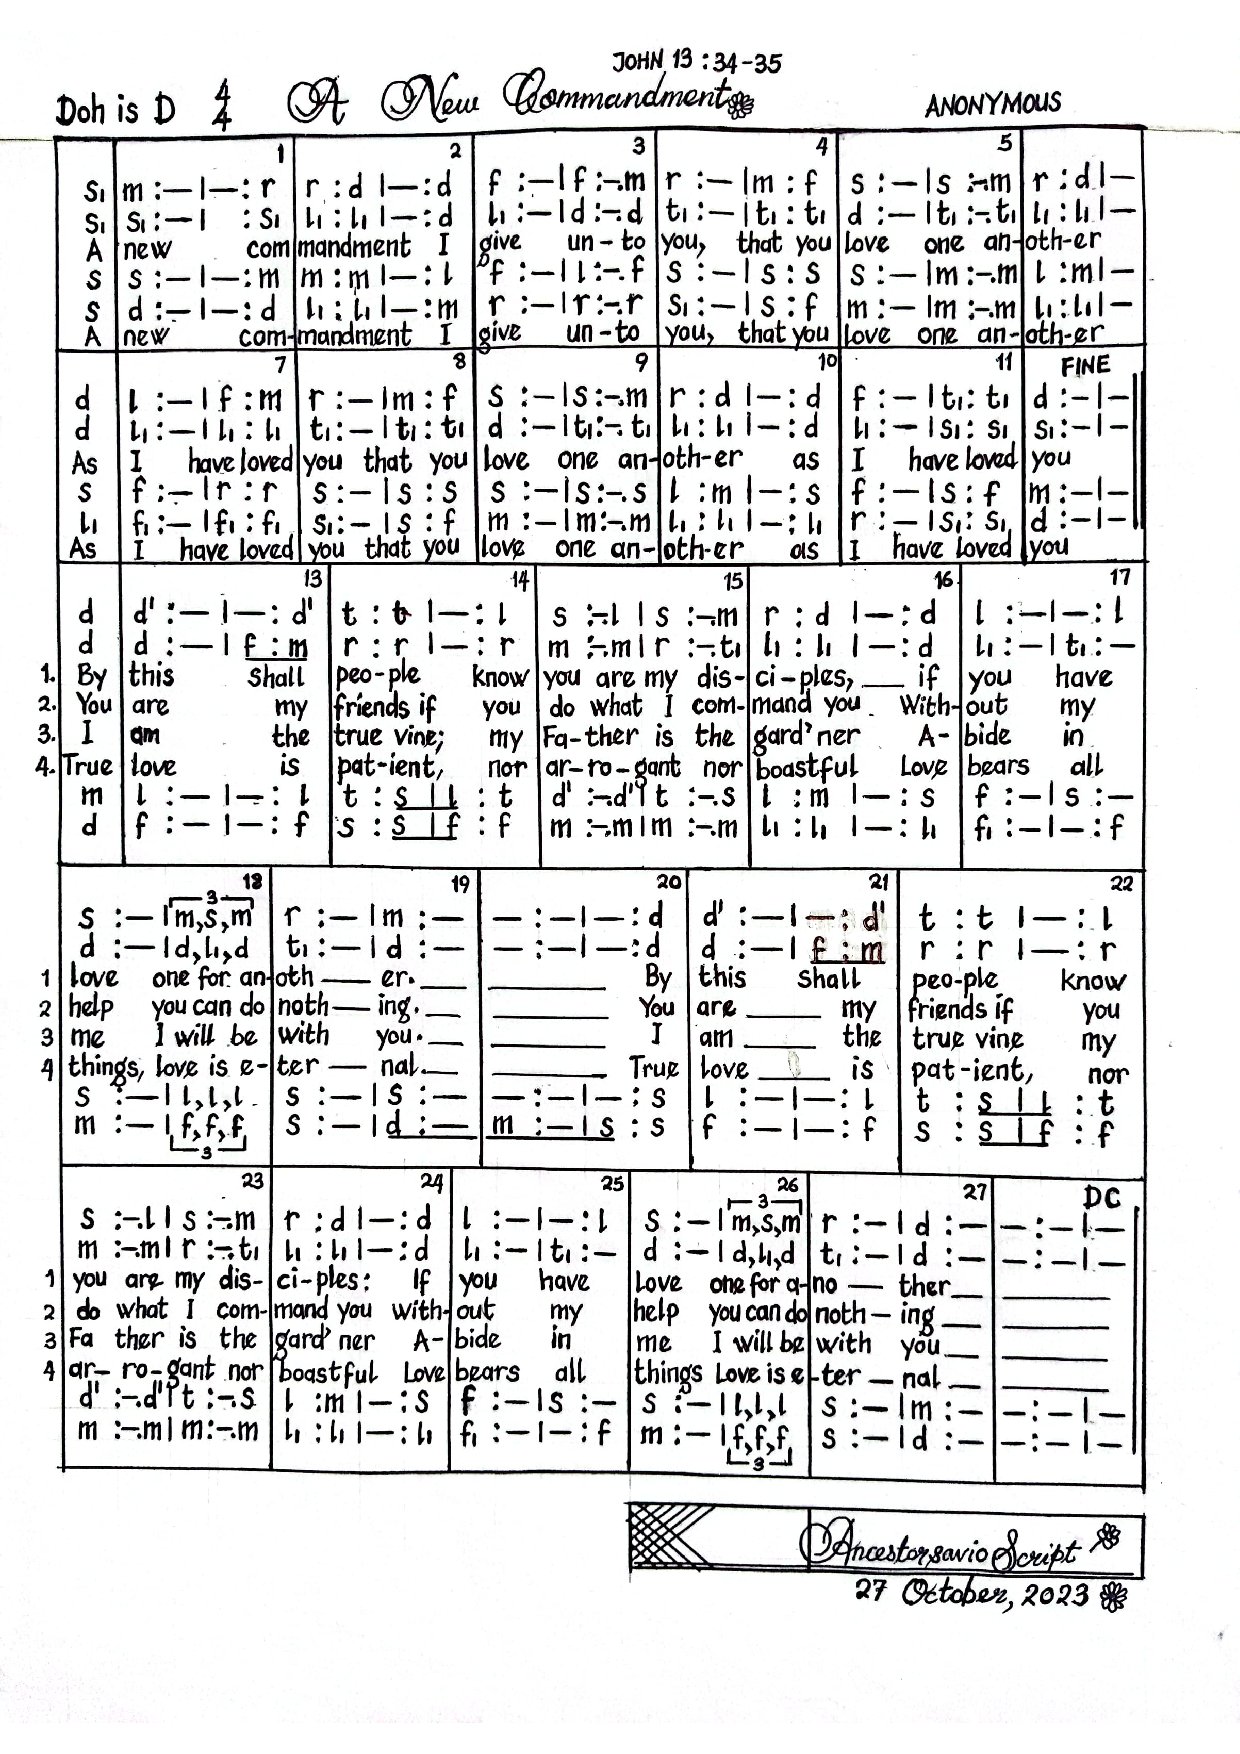 JOHN 13 : 34-35
Doh is D 4/4 A New Commandment ANONYMOUS
1 2 3 4 5
s₁ m :— |— : r r : d |— : d f :— | f :-.m r :— | m : f s :— | s :-.m r : d |—
s₁ s₁ :— | : s₁ l₁ : l₁ |— : d l₁ :— | d :-.d t₁ :— | t₁ : t₁ d :— | t₁ :-.t₁ l₁ : l₁ |—
A new com mandment I give un-to you, that you love one an-oth-er
s s :— |— : m m : m |— : l f :— | l :-.f s :— | s : s s :— | m :-.m l : m | —
s d :— |— : d l₁ : l₁ |— : m r :— | r :-.r s₁ :— | s : f m :— | m :-.m l₁ : l₁ | —
A new com-mandment I give un-to you, that you love one an-oth-er
7 8 9 10 11 FINE
d l :— | f : m r :— | m : f s :— | s :-.m r : d |— : d f :— | t₁ : t₁ d :— | —
d l₁ :— | l₁ : l₁ t₁ :— | t₁ : t₁ d :— | t₁ :-.t₁ l₁ : l₁ |— : d l₁ :— | s₁ : s₁ s₁ :— | —
As I have loved you that you love one an-oth-er as I have loved you
s f :— | r : r s :— | s : s s :— | s :-.s l : m |— : s f :— | s : f m :— | —
l₁ f₁ :— | f₁ : f₁ s₁ :— | s : f m :— | m :-.m l₁ : l₁ |— : l₁ r :— | s₁ : s₁ d :— | —
As I have loved you that you love one an-oth-er as I have loved you
13 14 15 16 17
d d' :— |— : d' t : t |— : l s :-.l | s :-.m r : d |— : d l :— |— : l
d d :— | f : m r : r |— : r m :-.m | r :-.t₁ l₁ : l₁ |— : d l₁ :— | t₁ : —
1. By this shall peo-ple know you are my dis-ci-ples, __ if you have
2. You are my friends if you do what I com-mand you. With-out my
3. I am the true vine; my Fa-ther is the gard'ner A-bide in
4. True love is pat-ient, nor ar-ro-gant nor boastful Love bears all
m l :— |— : l t : s | l : t d' :-.d' | t :-.s l : m |— : s f :— | s : —
d f :— |— : f s : s | f : f m :-.m | m :-.m l₁ : l₁ |— : l₁ f₁ :— |— : f
18 19 20 21 22
3
s :— | m,s,m r :— | m : — — : — | — : d d' :— |— : d' t : t |— : l
d :— | d,l₁,d t₁ :— | d : — — : — | — : d d :— | f : m r : r |— : r
1 love one for an-oth __ er. __ ______ By this shall peo-ple know
2 help you can do noth — ing. __ ______ You are ____ my friends if you
3 me I will be with you. __ ______ I am ____ the true vine my
4 things, love is e-ter — nal. __ ______ True love ____ is pat-ient, nor
s :— | l,l,l s :— | s : — — : — | — : s l :— |— : l t : s | l : t
m :— | f,f,f s :— | d : — m : — | s : s f :— |— : f s : s | f : f
3
23 24 25 26 27 DC
3
s :-.l | s :-.m r : d |— : d l :— |— : l s :— | m,s,m r :— | d : — — : — | —
m :-.m | r :-.t₁ l₁ : l₁ |— : d l₁ :— | t₁ : — d :— | d,l₁,d t₁ :— | d : — — : — | —
1 you are my dis-ci-ples: If you have Love one for a-no — ther __ ______
2 do what I com-mand you with-out my help you can do noth — ing __ ______
3 Fa ther is the gard'ner A-bide in me I will be with you __ ______
4 ar-ro-gant nor boastful Love bears all things Love is e-ter — nal __ ______
d' :-.d' | t :-.s l : m |— : s f :— | s : — s :— | l,l,l s :— | m : — — : — | —
m :-.m | m :-.m l₁ : l₁ |— : l₁ f₁ :— |— : f m :— | f,f,f s :— | d : — — : — | —
3
Ancestorsavio Script
27 October, 2023